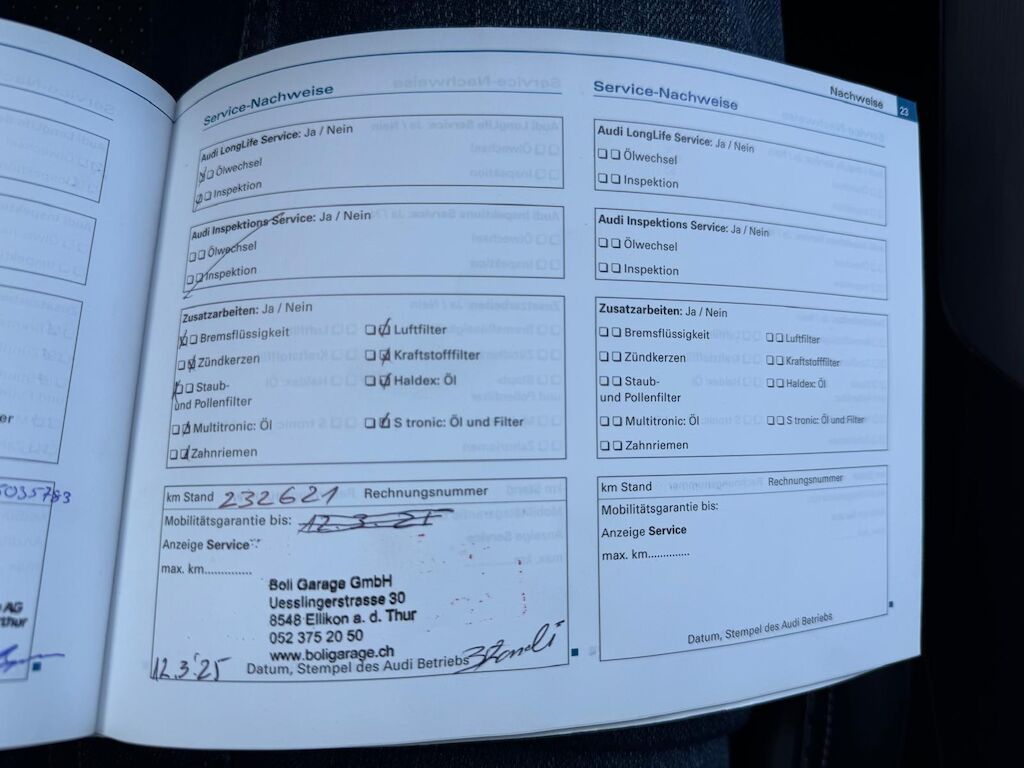 Service-Nachweise
Audi LongLife Service: Ja / Nein
Ölwechsel
Inspektion
Audi Inspektions Service: Ja / Nein
Ölwechsel
Inspektion
Zusatzarbeiten: Ja / Nein
Bremsflüssigkeit
Luftfilter
Zündkerzen
Kraftstofffilter
Staub-
und Pollenfilter
Haldex: Öl
Multitronic: Öl
S tronic: Öl und Filter
Zahnriemen
km Stand 232621 Rechnungsnummer
Mobilitätsgarantie bis: 12.3.25
Anzeige Service
max. km..............
Boli Garage GmbH
Uesslingerstrasse 30
8548 Ellikon a. d. Thur
052 375 20 50
www.boligarage.ch
12.3.25 Datum, Stempel des Audi Betriebs
Nachweise 23
Service-Nachweise
Audi LongLife Service: Ja / Nein
Ölwechsel
Inspektion
Audi Inspektions Service: Ja / Nein
Ölwechsel
Inspektion
Zusatzarbeiten: Ja / Nein
Bremsflüssigkeit
Luftfilter
Zündkerzen
Kraftstofffilter
Staub-
und Pollenfilter
Haldex: Öl
Multitronic: Öl
S tronic: Öl und Filter
Zahnriemen
km Stand Rechnungsnummer
Mobilitätsgarantie bis:
Anzeige Service
max. km..............
Datum, Stempel des Audi Betriebs
er
5035783
AG